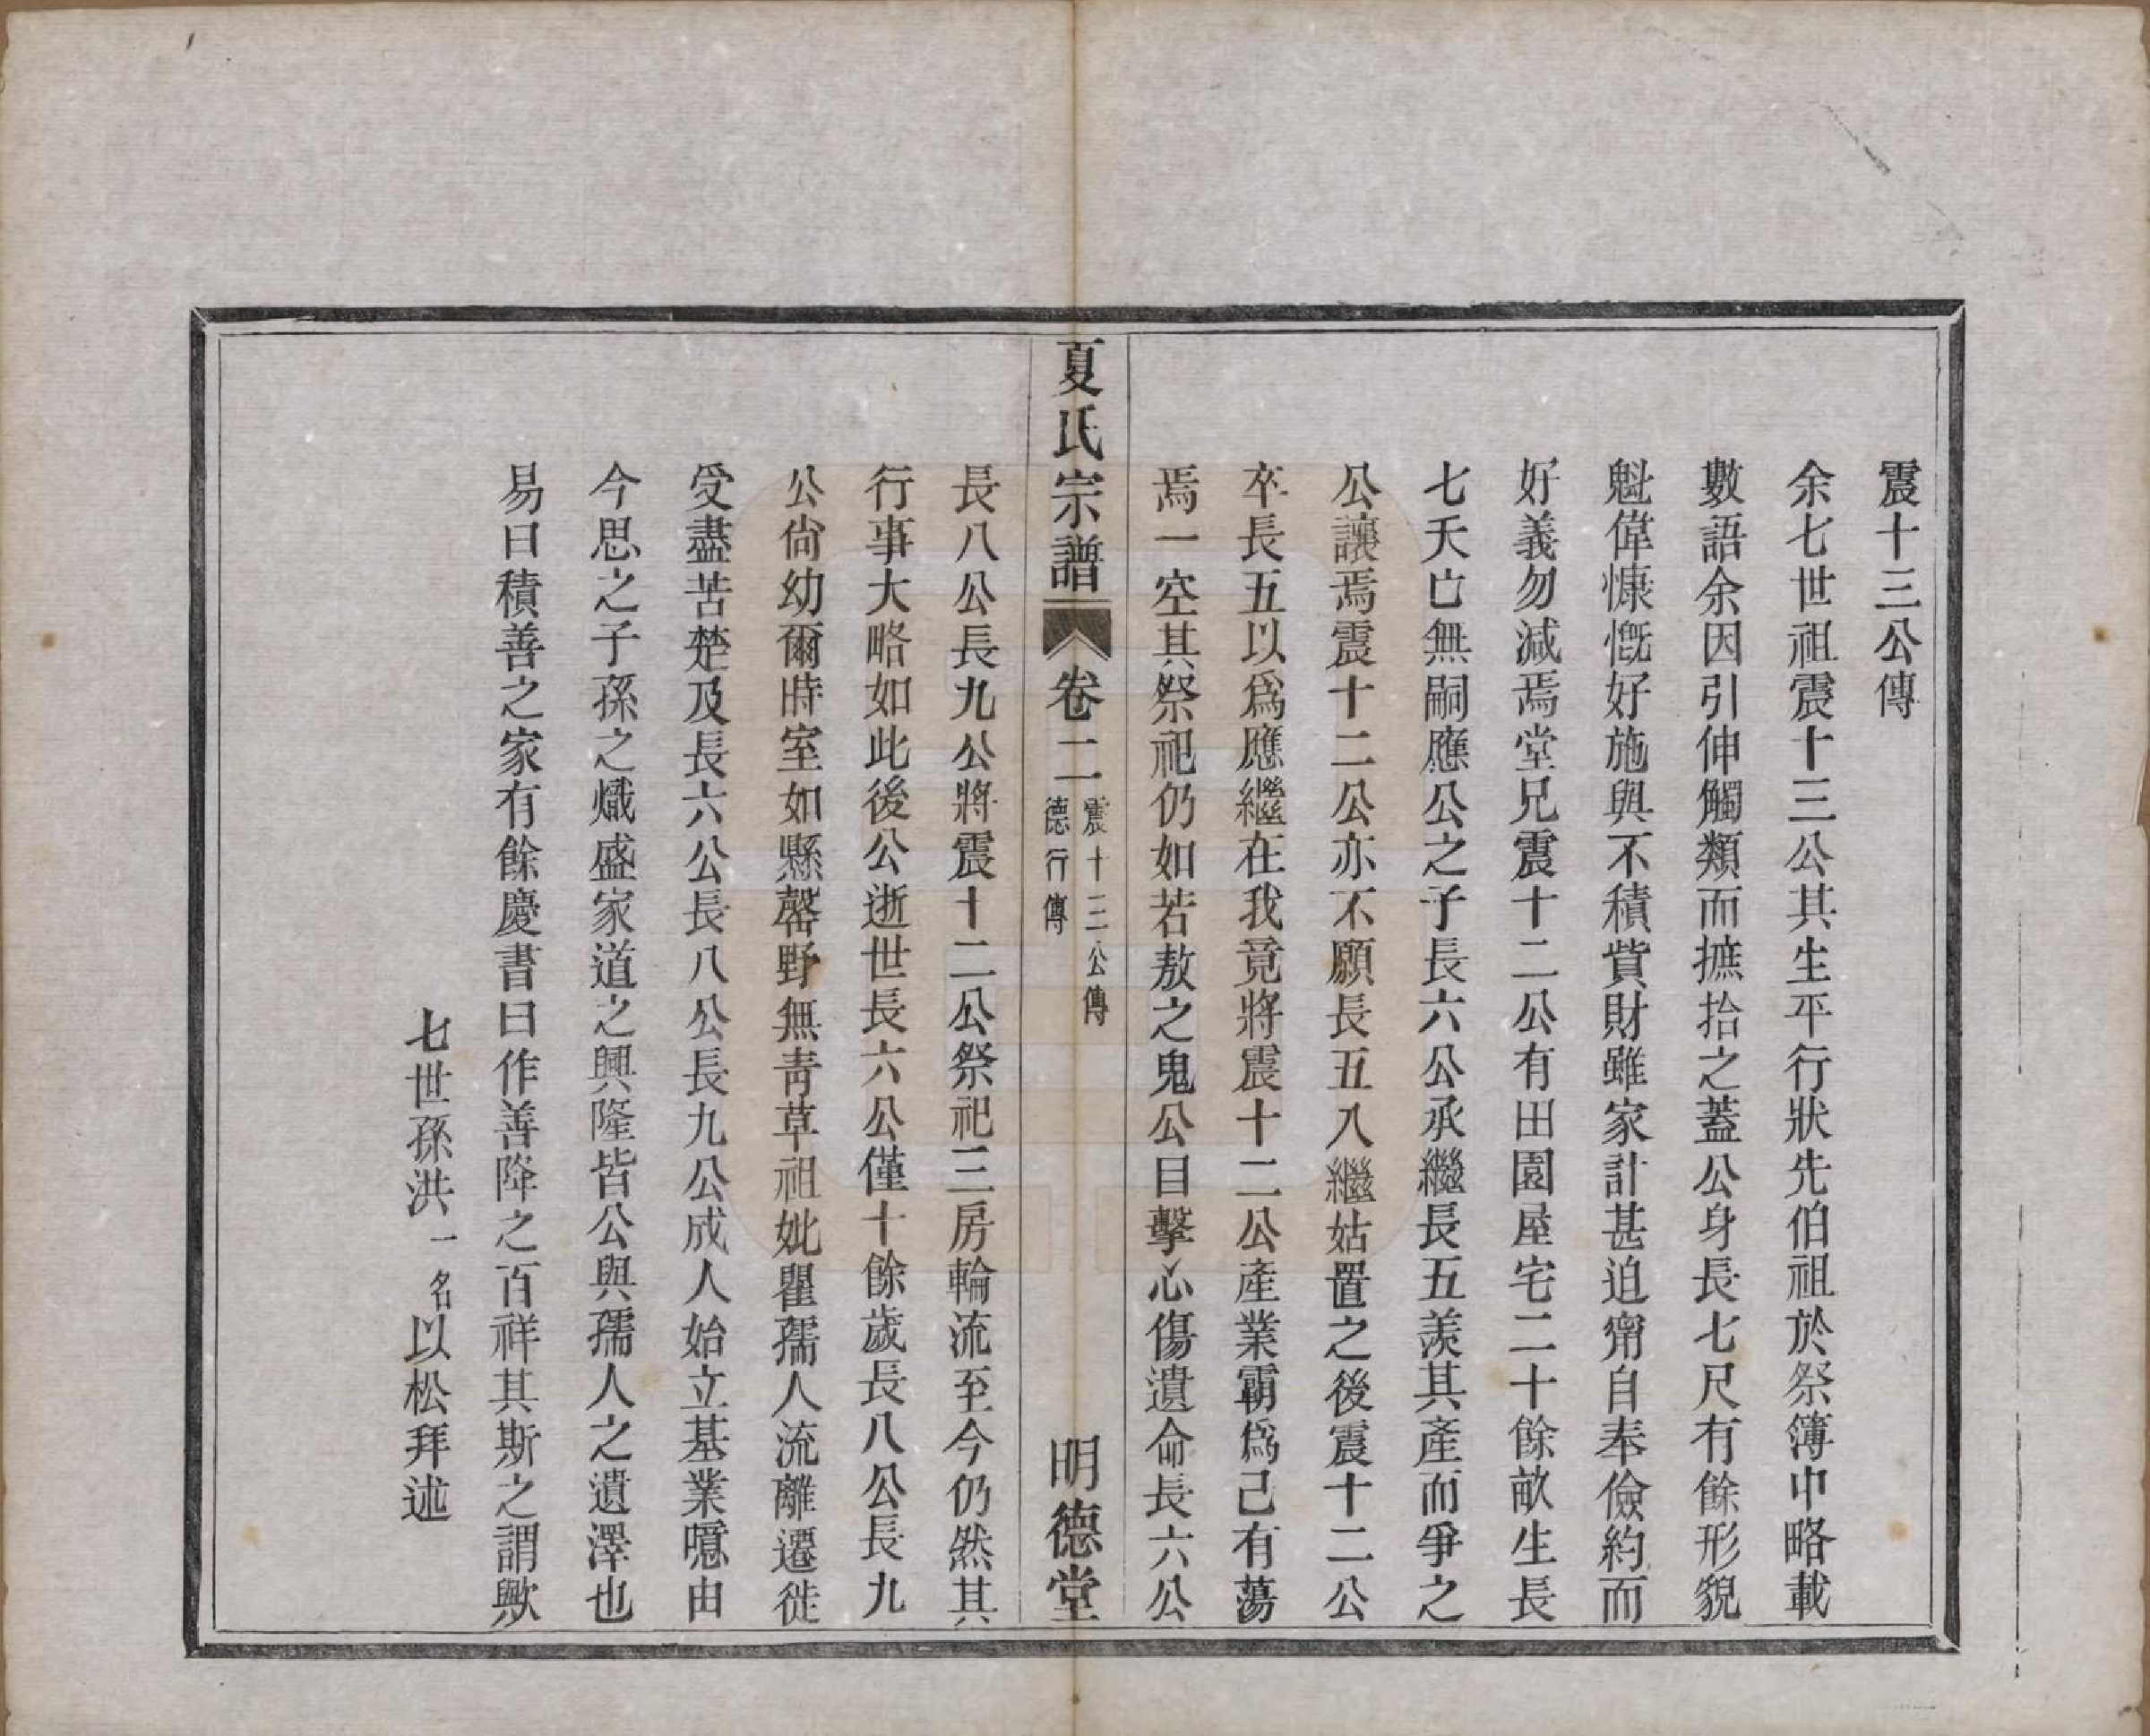 震十三公傳
余七世祖震十三公其生平行狀先伯祖於祭簿中略載
數語余因引伸觸類而摭拾之蓋公身長七尺有餘形貌
魁偉慷慨好施與不積貲財雖家計甚迫甯自奉儉約而
好義勿減焉堂兄震十二公有田園屋宅二十餘畝生長
七夭亡無嗣應公之子長六公承繼長五羨其產而爭之
公讓焉震十二公亦不願長五入繼姑置之後震十二公
卒長五以爲應繼在我竟將震十二公產業霸爲己有蕩
焉一空其祭祀仍如若敖之鬼公目擊心傷遺命長六公
夏氏宗譜 卷二 震十三公傳 德行傳 明德堂
長八公長九公將震十二公祭祀三房輪流至今仍然其
行事大略如此後公逝世長六公僅十餘歲長八公長九
公尙幼爾時室如縣罄野無靑草祖妣瞿孺人流離遷徙
受盡苦楚及長六公長八公長九公成人始立基業噫由
今思之子孫之熾盛家道之興隆皆公與孺人之遺澤也
易曰積善之家有餘慶書曰作善降之百祥其斯之謂歟
七世孫洪一名以松拜述